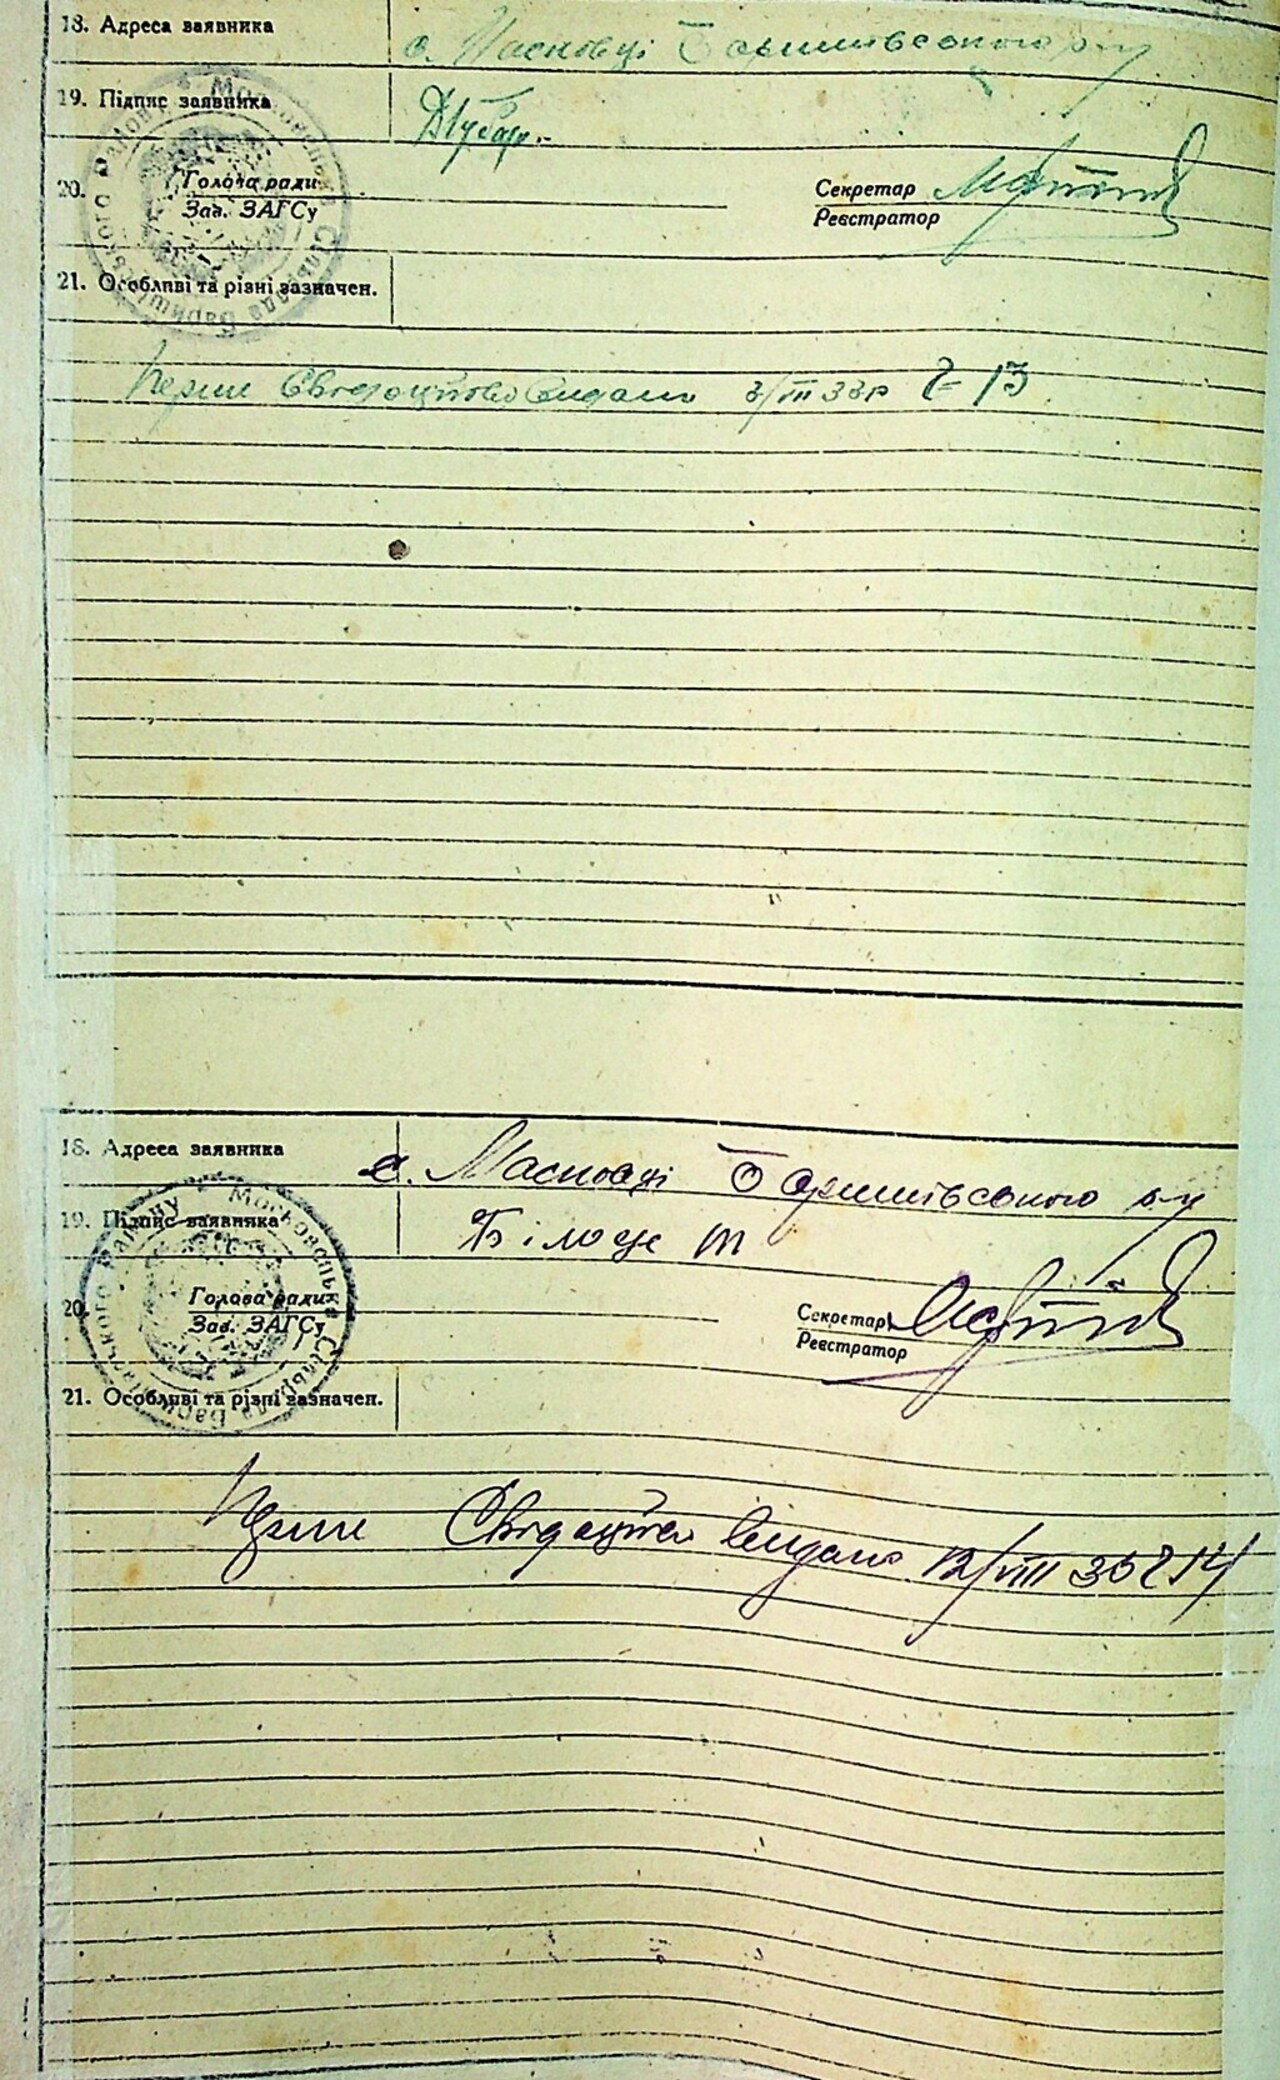 18. Адреса заявника
с. Масковці Баришівського р-ну
19. Підпис заявника
20. Голова ради
Зав. ЗАГСу
Секретар
Реєстратор
21. Особливі та різні зазначен.
Перше Свідоцтво видано 3/VII 33р № 13
18. Адреса заявника
с. Масковці Баришівського р-ну
19. Підпис заявника
Білоце М
20. Голова ради
Зав. ЗАГСу
Секретар
Реєстратор
21. Особливі та різні зазначен.
Перше Свідоцтво видано 12/VIII 33 № 14